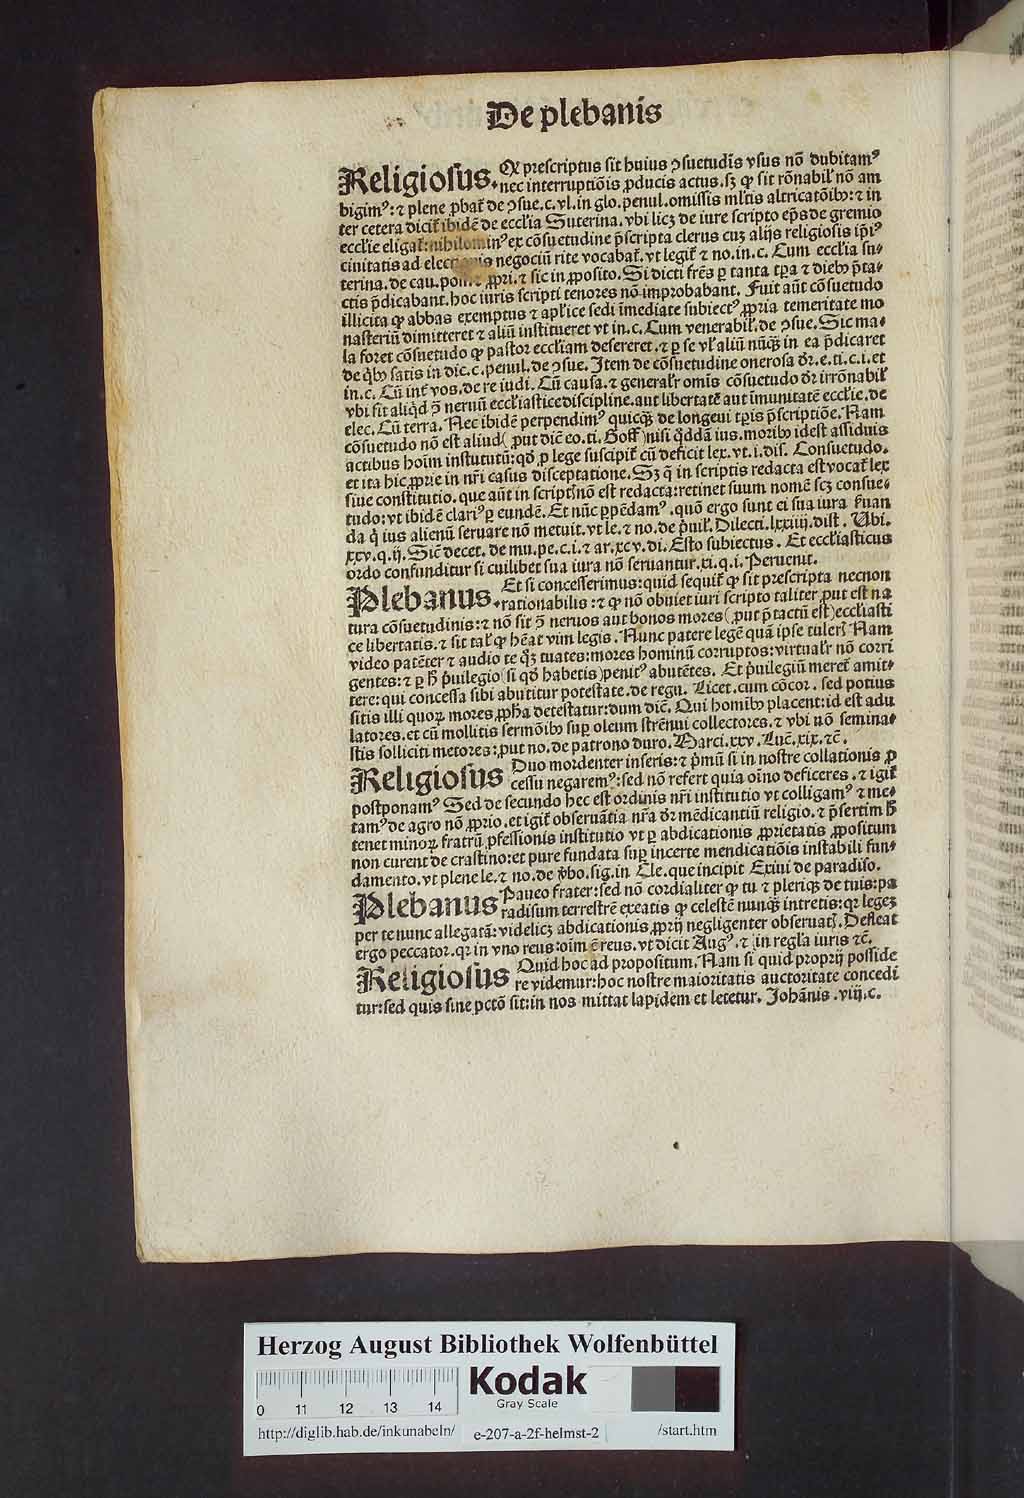 De plebanis
Religiosus. Qꝫ prescriptus sit huius ↄsuetudīs vsus nō dubitamꝰ
nec interruptiōis ꝓducis actus. sꝫ ꝙ sit rōnabil̓ nō am
bigimꝰ: ⁊ plene ꝓbat̉ de ↄsue. c. vl. in glo. penul. omissis ml̓tis altricatōibꝰ: ⁊ in
ter cetera dicit̉ ibidē de eccl̓ia Suterina. vbi licꝫ de iure scripto ep̄s de gremio
eccl̓ie eligat̉: nihilominꝰ ex cōsuetudine p̄scripta clerus cuꝫ alijs religiosis ip̄iꝰ
ciuitatis ad electionis negociū rite vocabat̉. vt legit̉ ⁊ no. in. c. Cum eccl̓ia su⸗
terina. de cau. pos. ⁊ ꝓpri. ⁊ sic in ꝓposito. Si dicti fr̄es ꝑ tanta tꝑa ⁊ diebꝰ p̄ta⸗
ctis p̄dicabant. hoc iuris scripti tenores nō improbabant. Fuit aūt cōsuetudo
illicita ꝙ abbas exemptus ⁊ apl̓ice sedi īmediate subiectꝰ ꝓpria temeritate mo
nasteriū dimitteret ⁊ aliū institueret vt in. c. Cum venerabil̓. de ↄsue. Sic ma⸗
la foret cōsuetudo ꝙ pastor eccl̓iam desereret. ⁊ ꝑ se vl̓ aliū nūqꝫ in ea p̄dicaret
de q̄bꝰ satis in dic. c. penul. de ↄsue. Item de cōsuetudine onerosa dr̄. e. ti. c. i. et
in. c. Cū int̉ vos. de re iudi. Cū causa. ⁊ generalr̄ omīs cōsuetudo dr̄ irrōnabil̓
vbi sit aliq̄d ↄ̄ neruū eccl̓iastice discipline. aut libertatē aut īmunitatē eccl̓ie. de
elec. Cū terra. Nec ibidē perpendimꝰ quicqꝫ de longeui tꝑis p̄scriptiōe. Nam
cōsuetudo nō est aliud (ꝓut dic̄ eo. ti. Goff) nisi q̄ddā ius. moribꝰ idest assiduis
actibus hoīm institutū: qd̓ ꝓ lege suscipit̉ cū deficit lex. vt. i. dis. Consuetudo.
et ita hic ꝓprie in nr̄i casus disceptatione. Sꝫ q̄ in scriptis redacta est vocat̉ lex
siue constitutio. que aūt in script̉ nō est redacta: retinet suum nomē scꝫ consue⸗
tudo: vt ibidē clariꝰ ꝑ eundē. Et nūc ꝑpēdamꝰ. quō ergo sunt ei sua iura ẜuan
da q̄ ius alienū seruare nō metuit. vt le. ⁊ no. de p̄uil̓. Dilecti. lxxiiij. dist. Vbi.
xxv. q. ij. Sic̄ decet. de mu. pe. c. i. ⁊ ar. xcv. di. Esto subiectus. Et eccl̓iasticus
ordo confunditur si cuilibet sua iura nō seruantur. xi. q. i. Peruenit.
Plebanus. Et si concesserimus: quid sequit̉ ꝙ sit prescripta necnon
rationabilis: ⁊ ꝙ nō obuiet iuri scripto taliter ꝓut est na
tura cōsuetudinis: ⁊ nō sit ↄ̄ neruos aut bonos mores (ꝓut p̄tactū est) eccl̓iasti
ce libertatis. ⁊ sit tal̓ ꝙ hēat vim legis. Nunc patere legē quā ipse tuleris Nam
video patēter ⁊ audio te qꝫ tuates: mores hominū corruptos: virtualr̄ nō corri
gentes: ⁊ ꝑ hͦ p̄uilegio (si qd̓ habetis) penitꝰ abutētes. Et p̄uilegiū meret̉ amit⸗
tere: qui concessa sibi abutitur potestate. de regu. Licet. cum cōcor. sed potius
sitis illi quoꝝ mores ꝓph̄a detestatur: dum dic̄. Qui hominibꝰ placent: id est adu
latores. et cū mollitis sermōibꝰ suꝑ oleum strēnui collectores. ⁊ vbi nō semina⸗
stis solliciti metores: ꝓut no. de patrono duro. Marci. xxv. Luc̄. xix. ⁊c̄.
Religiosus Duo mordenter inseris: ⁊ p̄mū si in nostre collationis ꝓ
cessu negaremꝰ: sed nō refert quia oīno deficeres. ⁊ igit̉
postponamꝰ Sed de secundo hec est ordinis nr̄i institutio vt colligamꝰ ⁊ me⸗
tamꝰ de agro nō ꝓprio. et igit̉ obseruātia nr̄a dr̄ mēdicantiū religio. ⁊ p̄sertim hͦ
tenet minoꝝ fratrū ꝓfessionis institutio vt ꝑ abdicationis ꝓprietatis ꝓpositum
non curent de crastino: et pure fundata suꝑ incerte mendicatiōis instabili fun⸗
damento. vt plene le. ⁊ no. de v̓bo. sig. in Cle. que incipit Exiui de paradiso.
Plebanus Paueo frater: sed nō cordialiter ꝙ tu ⁊ pleriqꝫ de tuis: pa
radisum terrestrē exeatis ꝙ celestē nunqꝫ intretis: qꝛ legeꝫ
per te nunc allegatā: videlicꝫ abdicationis ꝓprij negligenter obseruatis. Defleat
ergo peccator. qꝛ in vno reus: oīm ē reus. vt dicit Augꝰ. ⁊ in regl̓a iuris ⁊c̄.
Religiosus Quid hoc ad propositum. Nam si quid proprij posside
re videmur: hoc nostre maioritatis auctoritate concedi
tur: sed quis sine pctō sit: in nos mittat lapidem et letetur. Johānis. viij. c.
Herzog August Bibliothek Wolfenbüttel
0 11 12 13 14
Kodak
Gray Scale
http://diglib.hab.de/inkunabeln/ e-207-a-2f-helmst-2 /start.htm